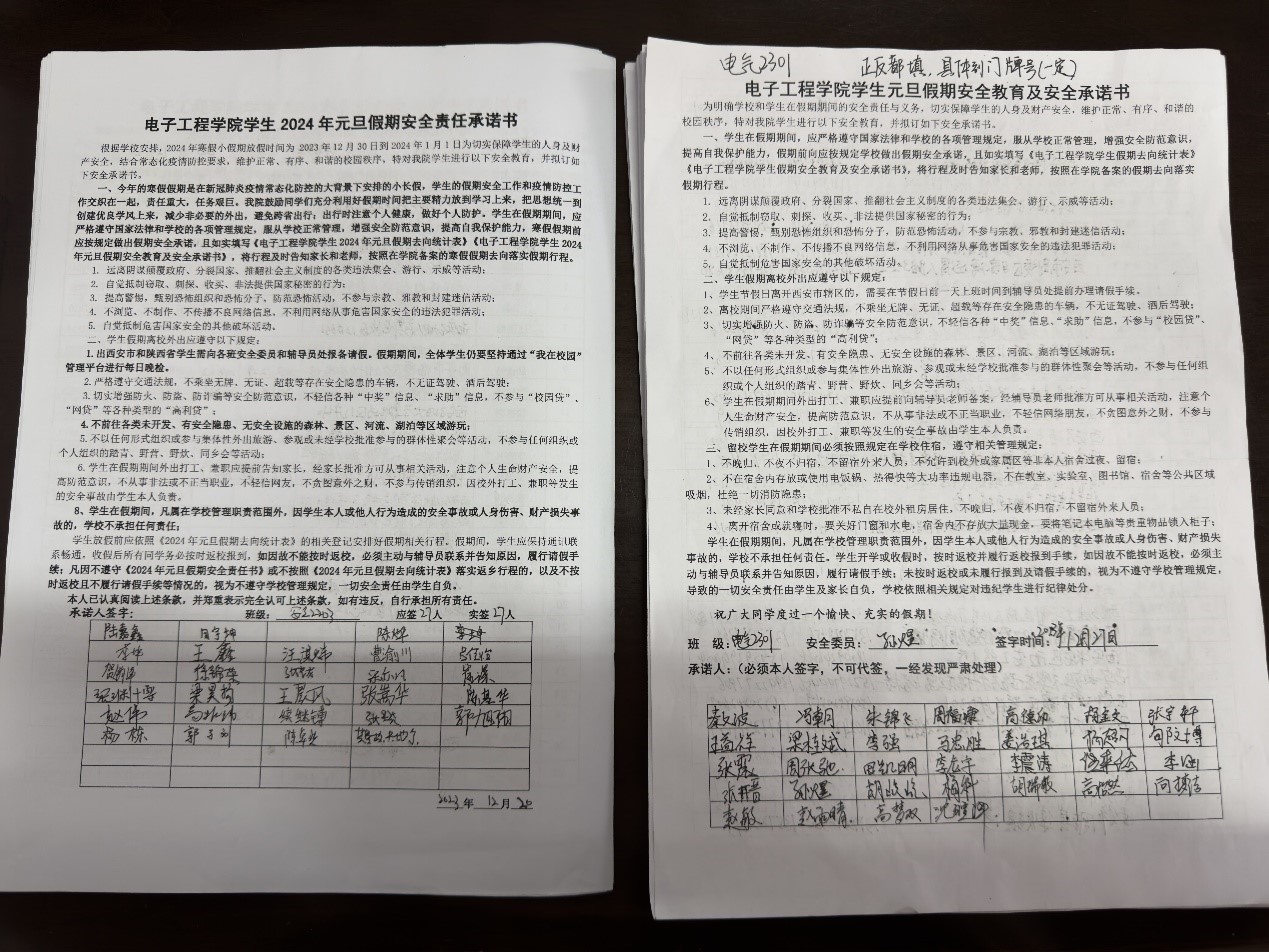 电子工程学院学生 2024 年元旦假期安全责任承诺书
根据学校安排，2024 年寒假小假期放假时间为 2023 年 12 月 30 日到 2024 年 1 月 1 日为切实保障学生的人身及财
产安全，结合常态化疫情防控要求，维护正常、有序、和谐的校园秩序，特对我院学生进行以下安全教育，并拟订如
下安全承诺书。
一、今年的寒假假期是在新冠肺炎疫情常态化防控的大背景下安排的小长假，学生的假期安全工作和疫情防控工
作交织在一起，责任重大，任务艰巨。我院鼓励同学们充分利用好假期时间把主要精力放到学习上来，把思想统一到
创建优良学风上来，减少非必要的外出，避免跨省出行；出行时注意个人健康，做好个人防护。学生在假期期间，应
严格遵守国家法律和学校的各项管理规定，服从学校正常管理，增强安全防范意识，提高自我保护能力，寒假假期前
应按规定做出假期安全承诺，且如实填写《电子工程学院学生 2024 年元旦假期去向统计表》《电子工程学院学生 2024
年元旦假期安全教育及安全承诺书》，将行程及时告知家长和老师，按照在学院备案的寒假假期去向落实假期行程。
1. 远离阴谋颠覆政府、分裂国家、推翻社会主义制度的各类违法集会、游行、示威等活动；
2. 自觉抵制窃取、刺探、收买、非法提供国家秘密的行为；
3. 提高警惕，甄别恐怖组织和恐怖分子，防范恐怖活动，不参与宗教、邪教和封建迷信活动；
4. 不浏览、不制作、不传播不良网络信息，不利用网络从事危害国家安全的违法犯罪活动；
5. 自觉抵制危害国家安全的其他破坏活动。
二、学生假期离校外出应遵守以下规定：
1.出西安市和陕西省学生需向各班安全委员和辅导员处报备请假。假期期间，全体学生仍要坚持通过“我在校园”
管理平台进行每日晚检。
2.严格遵守交通法规，不乘坐无牌、无证、超载等存在安全隐患的车辆，不无证驾驶、酒后驾驶；
3.切实增强防火、防盗、防诈骗等安全防范意识，不轻信各种“中奖”信息、“求助”信息，不参与“校园贷”、
“网贷”等各种类型的“高利贷”；
4.不前往各类未开发、有安全隐患、无安全设施的森林、景区、河流、湖泊等区域游玩；
5.不以任何形式组织或参与集体性外出旅游、参观或未经学校批准参与的群体性聚会等活动，不参与任何组织或
个人组织的踏青、野营、野炊、同乡会等活动；
6.学生在假期期间外出打工、兼职应提前告知家长，经家长批准方可从事相关活动，注意个人生命财产安全，提
高防范意识，不从事非法或不正当职业，不轻信网友，不贪图意外之财，不参与传销组织，因校外打工、兼职等发生
的安全事故由学生本人负责。
8、学生在假期期间，凡属在学校管理职责范围外，因学生本人或他人行为造成的安全事故或人身伤害、财产损失事
故的，学校不承担任何责任；
学生放假前应依照《2024 年元旦假期去向统计表》的相关登记安排好假期相关行程。假期间，学生应保持通讯联
系畅通，收假后所有同学务必按时返校报到，如因故不能按时返校，必须主动与辅导员联系并告知原因，履行请假手
续；凡因不遵守《2024 年元旦假期安全责任书》或不按照《2024 年元旦假期去向统计表》落实返乡行程的，以及不按
时返校且不履行请假手续等情况的，视为不遵守学校管理规定，一切安全责任由学生自负。
本人已认真阅读上述条款，并郑重表示完全认可上述条款，如有违反，自行承担所有责任。
承诺人签字： 班级： 应签27人 实签27人
陆嘉鑫
王鑫
梁昊哲 王晨风 张
赵伟
杨栋
2023年 12月 20
电气2301 正反都填，具体到门牌号(一定)
电子工程学院学生元旦假期安全教育及安全承诺书
为明确学校和学生在假期期间的安全责任与义务，切实保障学生的人身及财产安全，维护正常、有序、和谐的
校园秩序，特对我院学生进行以下安全教育，并拟订如下安全承诺书。
一、学生在假期期间，应严格遵守国家法律和学校的各项管理规定，服从学校正常管理，增强安全防范意识，
提高自我保护能力，假期前向应按规定学校做出假期安全承诺，且如实填写《电子工程学院学生假期去向统计表》
《电子工程学院学生假期安全教育及安全承诺书》，将行程及时告知家长和老师，按照在学院备案的假期去向落实
假期行程。
1. 远离阴谋颠覆政府、分裂国家、推翻社会主义制度的各类违法集会、游行、示威等活动；
2. 自觉抵制窃取、刺探、收买、非法提供国家秘密的行为；
3. 提高警惕，甄别恐怖组织和恐怖分子，防范恐怖活动，不参与宗教、邪教和封建迷信活动；
4. 不浏览、不制作、不传播不良网络信息，不利用网络从事危害国家安全的违法犯罪活动；
5. 自觉抵制危害国家安全的其他破坏活动。
二、学生假期离校外出应遵守以下规定：
1、学生节假日离开西安市辖区的，需要在节假日前一天上班时间到辅导员处提前办理请假手续。
2、离校期间严格遵守交通法规，不乘坐无牌、无证、超载等存在安全隐患的车辆，不无证驾驶、酒后驾驶；
3、切实增强防火、防盗、防诈骗等安全防范意识，不轻信各种“中奖”信息、“求助”信息，不参与“校园贷”、
“网贷”等各种类型的“高利贷”；
4、不前往各类未开发、有安全隐患、无安全设施的森林、景区、河流、湖泊等区域游玩；
5、不以任何形式组织或参与集体性外出旅游、参观或未经学校批准参与的群体性聚会等活动，不参与任何组
织或个人组织的踏青、野营、野炊、同乡会等活动；
6、学生在假期期间外出打工、兼职应提前向辅导员老师备案，经辅导员老师批准方可从事相关活动，注意个
人生命财产安全，提高防范意识，不从事非法或不正当职业，不轻信网络朋友，不贪图意外之财，不参与
传销组织，因校外打工、兼职等发生的安全事故由学生本人负责。
三、留校学生在假期期间必须按照规定在学校住宿，遵守相关管理规定：
1、不晚归、不夜不归宿，不留宿外来人员，不允许到校外或家属区等非本人宿舍过夜、留宿；
2、不在宿舍内存放或使用电饭锅、热得快等大功率违规电器，不在教室、实验室、图书馆、宿舍等公共区域
吸烟，杜绝一切消防隐患；
3、未经家长同意和学校批准不私自在校外租房居住，不晚归，不夜不归宿，不留宿外来人员；
4、离开宿舍或就寝时，要关好门窗和水电，宿舍内不存放大量现金，要将笔记本电脑等贵重物品锁入柜子；
学生在假期期间，凡属在学校管理职责范围外，因学生本人或他人行为造成的安全事故或人身伤害、财产损失
事故的，学校不承担任何责任。学生开学或收假时，按时返校并履行返校报到手续，如因故不能按时返校，必须主
动与辅导员联系并告知原因，履行请假手续；未按时返校或未履行报到及请假手续的，视为不遵守学校管理规定，
导致的一切安全责任由学生及家长自负，学校依照相关规定对违纪学生进行纪律处分。
祝广大同学度过一个愉快、充实的假期！
班 级：电气2301 安全委员： 签字时间：2023年12月21日
承诺人：（必须本人签字，不可代签，一经发现严肃处理）
秦文波 冯朝月 朱锦飞 张宇轩
李强
李震涛
赵敏 赵雨晴 高梦双